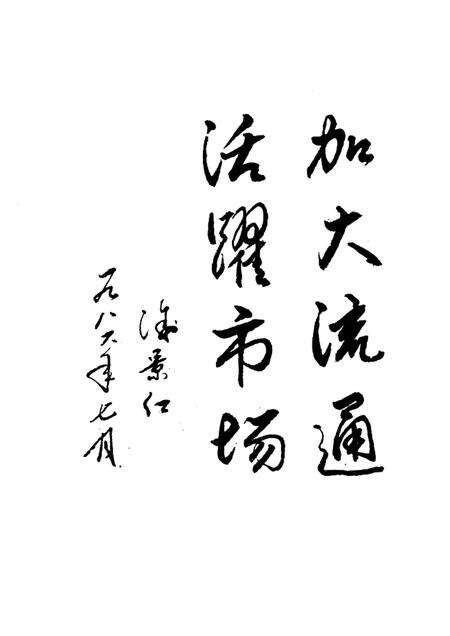 加大流通
活躍市场
景
一九八六年七月